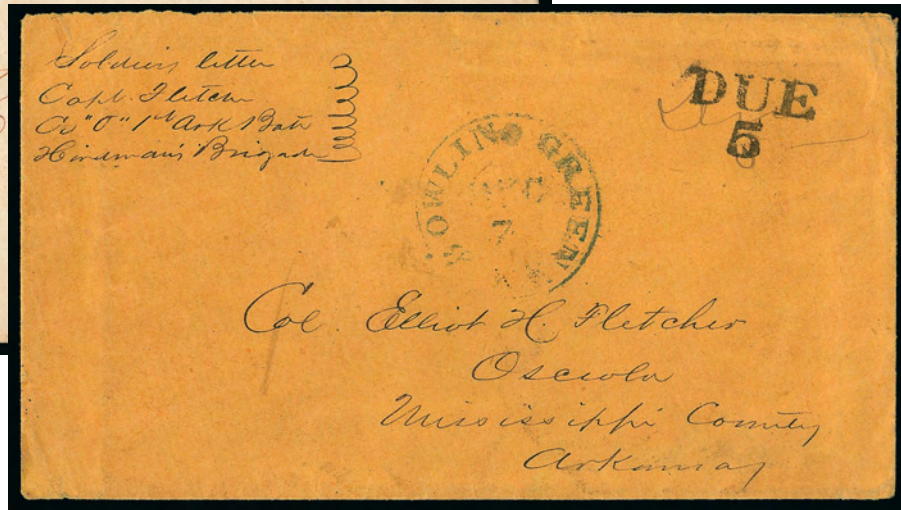 Soldiers letter
Capt. Fletcher
Co "D" 1st Ark Batn
Hindman's Brigade
DUE
5
BOWLING GREEN
DEC
7
Col Elliot H. Fletcher
Osceola
Mississippi County
Arkansas